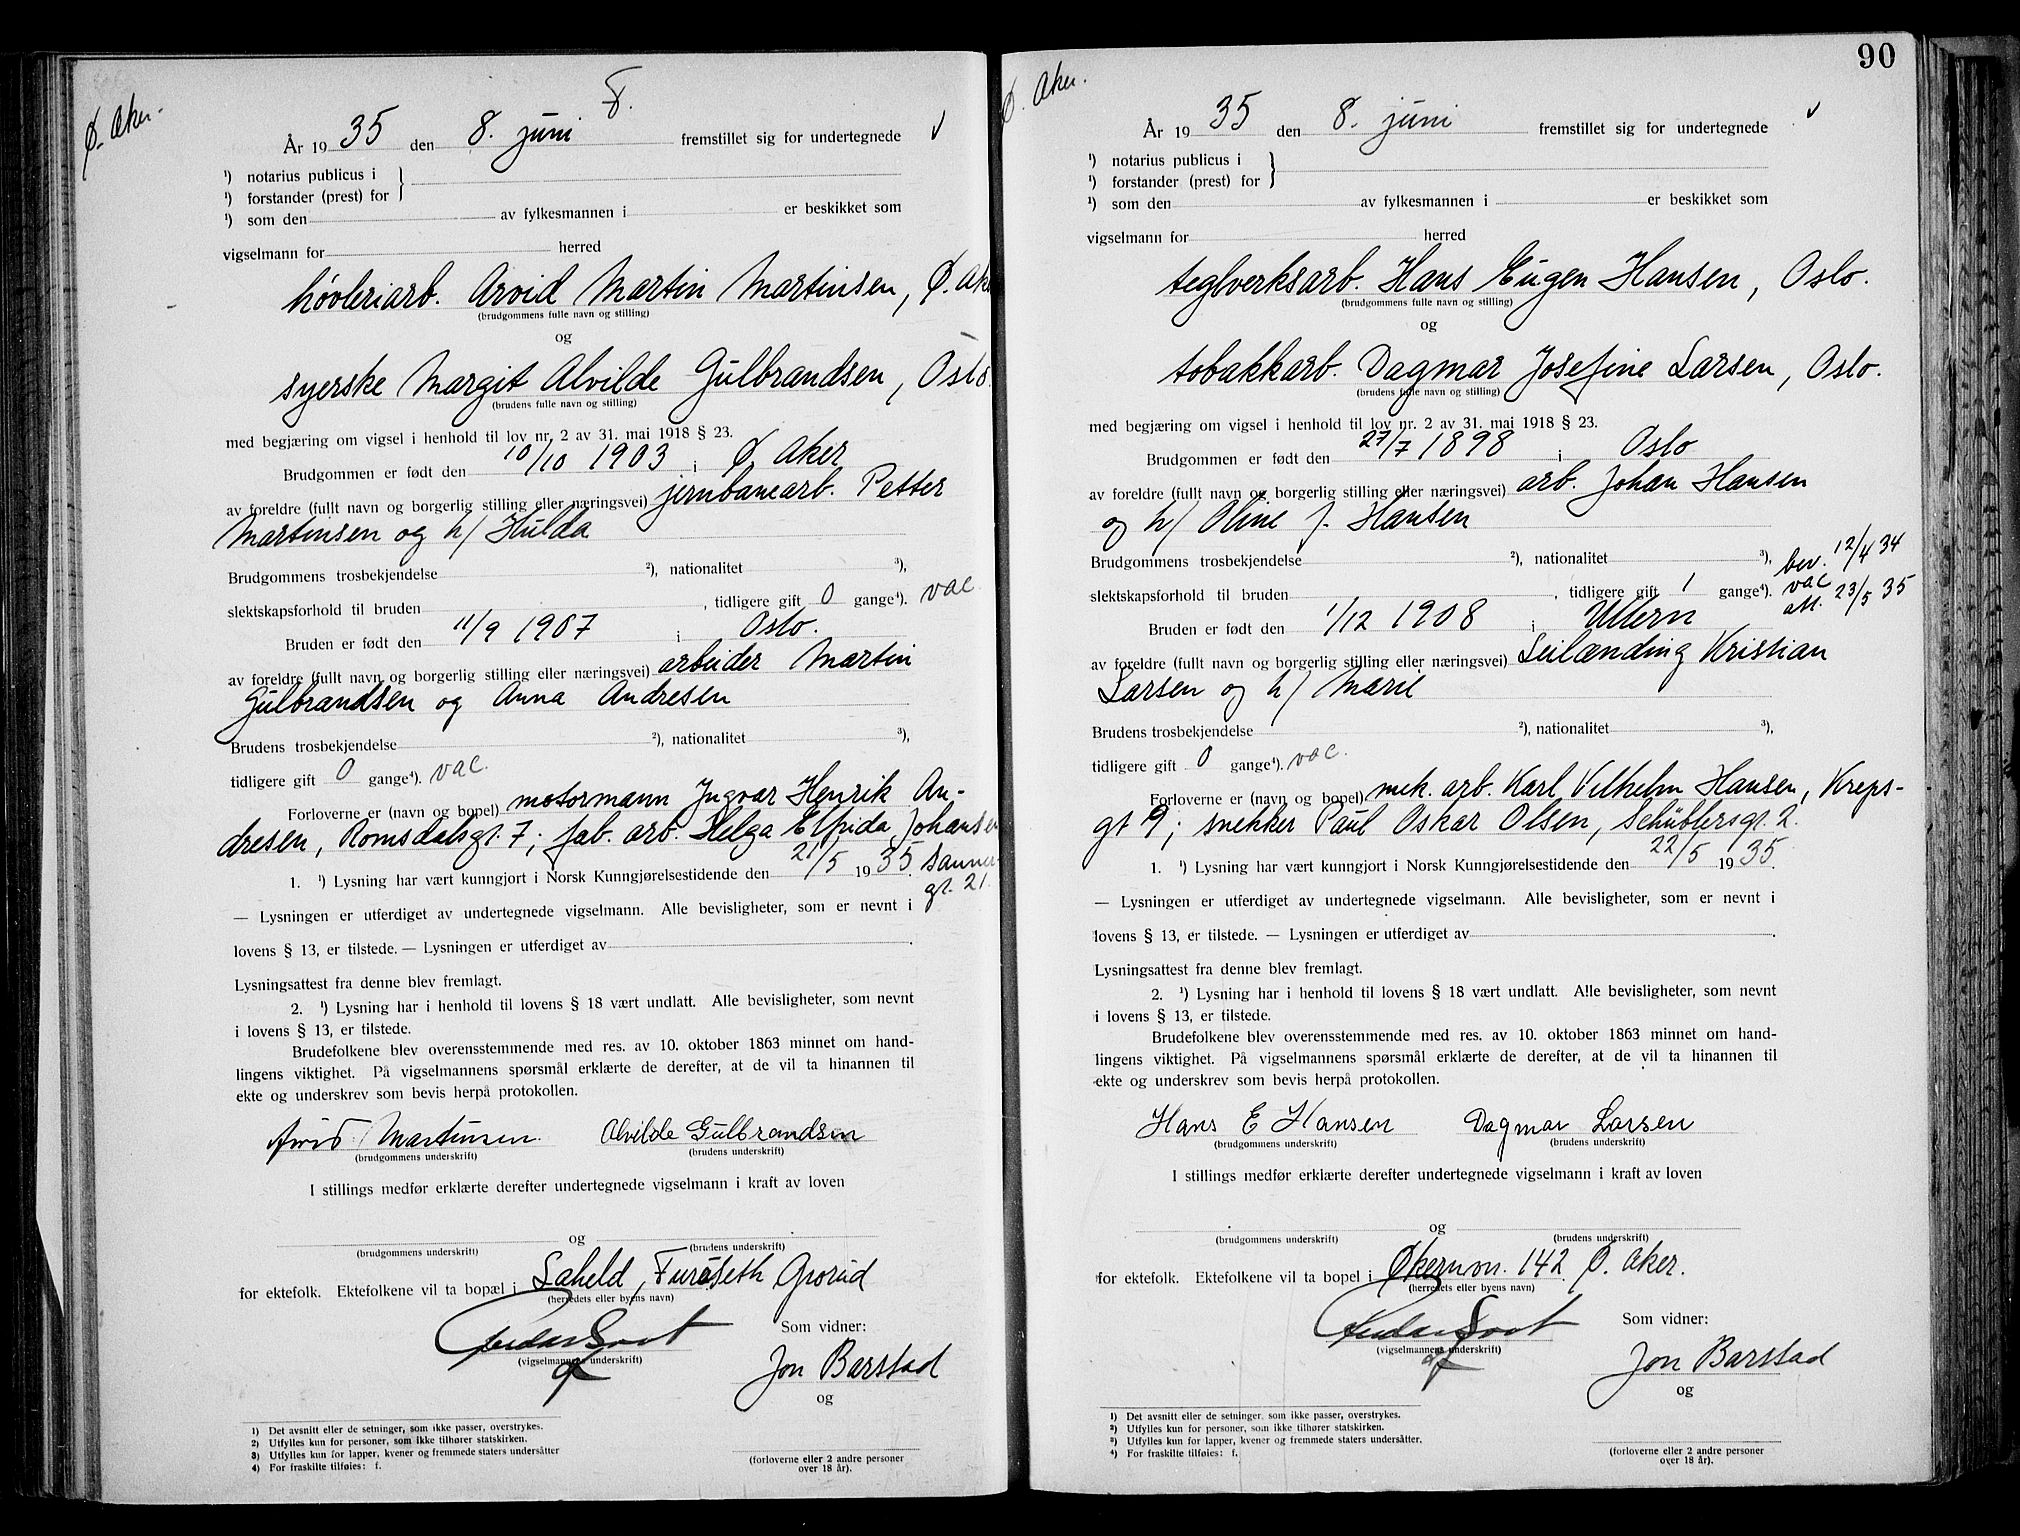 Ø. Aker.
F.
År 1935 den 8. juni fremstillet sig for undertegnede
¹) notarius publicus i
¹) forstander (prest) for
¹) som den av fylkesmannen i er beskikket som
vigselmann for herred
høvleriarb. Arvid Martin Martinsen, Ø. Ak
(brudgommens fulle navn og stilling)
og
syerske Margit Alvilde Gulbrandsen, Oslo.
(brudens fulle navn og stilling)
med begjæring om vigsel i henhold til lov nr. 2 av 31. mai 1918 § 23.
Brudgommen er født den 10/10 1903 i Ø Aker
av foreldre (fullt navn og borgerlig stilling eller næringsvei) jernbanearb. Petter
Martinsen og h/ Hulda
Brudgommens trosbekjendelse ²), nationalitet ³),
slektskapsforhold til bruden , tidligere gift 0 gange⁴). vac.
Bruden er født den 11/9 1907 i Oslo.
av foreldre (fullt navn og borgerlig stilling eller næringsvei) arbeider Martin
Gulbrandsen og Anna Andresen
Brudens trosbekjendelse ²), nationalitet ³),
tidligere gift 0 gange⁴). vac.
Forloverne er (navn og bopel) motormann Ingvar Henrik An-
dresen, Romsdalsgt. 7; fab. arb. Helga Elfrida Johansen
1. ¹) Lysning har vært kunngjort i Norsk Kunngjørelsestidende den 21/5 1935. Sanner-
gt. 21.
— Lysningen er utferdiget av undertegnede vigselmann. Alle bevisligheter, som er nevnt i
lovens § 13, er tilstede. — Lysningen er utferdiget av .
Lysningsattest fra denne blev fremlagt.
2. ¹) Lysning har i henhold til lovens § 18 vært undlatt. Alle bevisligheter, som nevnt
i lovens § 13, er tilstede.
Brudefolkene blev overensstemmende med res. av 10. oktober 1863 minnet om hand-
lingens viktighet. På vigselmannens spørsmål erklærte de derefter, at de vil ta hinannen til
ekte og underskrev som bevis herpå protokollen.
Arvid Martinsen. Alvilde Gulbrandsen
(brudgommens underskrift) (brudens underskrift)
I stillings medfør erklærte derefter undertegnede vigselmann i kraft av loven
og
(brudgommens underskrift) (brudens underskrift)
for ektefolk. Ektefolkene vil ta bopæl i Furuseth Grorud
(herredets eller byens navn)
Som vidner:
(vigselmannens underskrift)
Jon Barstad
og
¹) Det avsnitt eller de setninger, som ikke passer, overstrykes.
2) Utfylles kun for personer, som ikke tilhører statskirken.
3) Utfylles kun for lapper, kvener og fremmede staters undersåtter
4) For fraskilte tilføies: f.
(forloverne eller 2 andre personer
over 18 år).
90
Ø. Aker.
År 1935 den 8. juni fremstillet sig for undertegnede
¹) notarius publicus i
¹) forstander (prest) for
¹) som den av fylkesmannen i er beskikket som
vigselmann for herred
teglverksarb. Hans Eugen Hansen, Oslo.
(brudgommens fulle navn og stilling)
og
tobakkarb. Dagmar Josefine Larsen, Oslo.
(brudens fulle navn og stilling)
med begjæring om vigsel i henhold til lov nr. 2 av 31. mai 1918 § 23.
Brudgommen er født den 27/7 1898 i Oslo
av foreldre (fullt navn og borgerlig stilling eller næringsvei) arb. Johan Hansen
og h/ Oline f. Hansen
Brudgommens trosbekjendelse ²), nationalitet ³), bev. 12/4 34
slektskapsforhold til bruden , tidligere gift 1 gange⁴). vac
att. 23/5 35
Bruden er født den 1/12 1908 i Ullern
av foreldre (fullt navn og borgerlig stilling eller næringsvei) Leilænding Kristian
Larsen og h/ Marie
Brudens trosbekjendelse ²), nationalitet ³),
tidligere gift 0 gange⁴). vac.
Forloverne er (navn og bopel) mek. arb. Karl Vilhelm Hansen, Kreps-
gt 9; snekker Paul Oskar Olsen, Schüblersgt. 2.
1. ¹) Lysning har vært kunngjort i Norsk Kunngjørelsestidende den 22/5 1935.
— Lysningen er utferdiget av undertegnede vigselmann. Alle bevisligheter, som er nevnt i
lovens § 13, er tilstede. — Lysningen er utferdiget av .
Lysningsattest fra denne blev fremlagt.
2. ¹) Lysning har i henhold til lovens § 18 vært undlatt. Alle bevisligheter, som nevnt
i lovens § 13, er tilstede.
Brudefolkene blev overensstemmende med res. av 10. oktober 1863 minnet om hand-
lingens viktighet. På vigselmannens spørsmål erklærte de derefter, at de vil ta hinannen til
ekte og underskrev som bevis herpå protokollen.
Hans E Hansen Dagmar Larsen
(brudgommens underskrift) (brudens underskrift)
I stillings medfør erklærte derefter undertegnede vigselmann i kraft av loven
og
(brudgommens underskrift) (brudens underskrift)
for ektefolk. Ektefolkene vil ta bopel i Økernvn. 142 Ø. Aker.
(herredets eller byens navn)
Som vidner:
(vigselmannens underskrift)
Jon Barstad
og
¹) Det avsnitt eller de setninger som ikke passer, overstrykes.
²) Utfylles kun for personer, som ikke tilhører statskirken.
³) Utfylles kun for lapper, kvener og fremmede staters undersåtter.
⁴) For fraskilte tilføies: f.
(forloverne eller 2 andre personer
over 18 år).